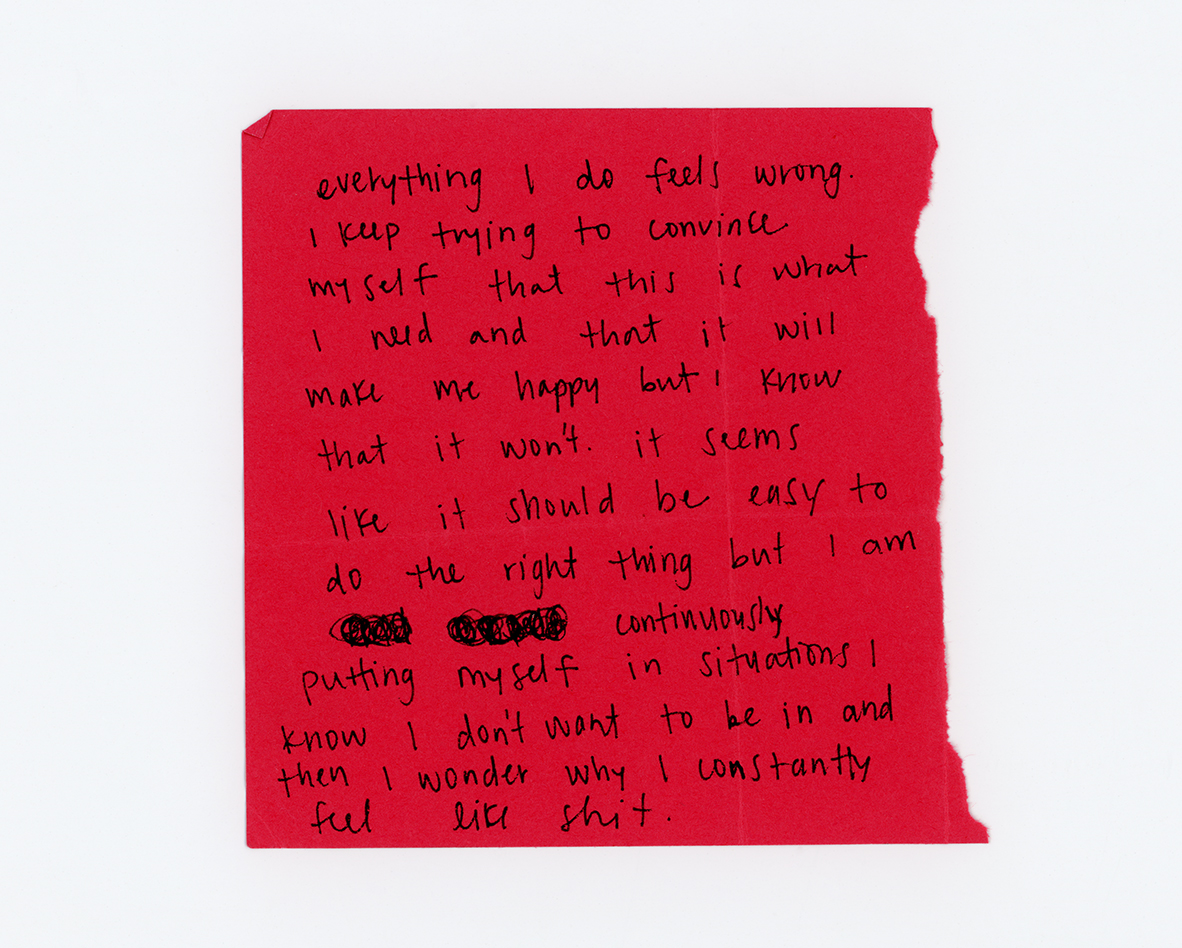 everything I do feels wrong.
I keep trying to convince
myself that this is what
I need and that it will
make me happy but I know
that it won't. it seems
like it should be easy to
do the right thing but I am
continuously
putting myself in situations I
know I don't want to be in and
then I wonder why I constantly
feel like shit.